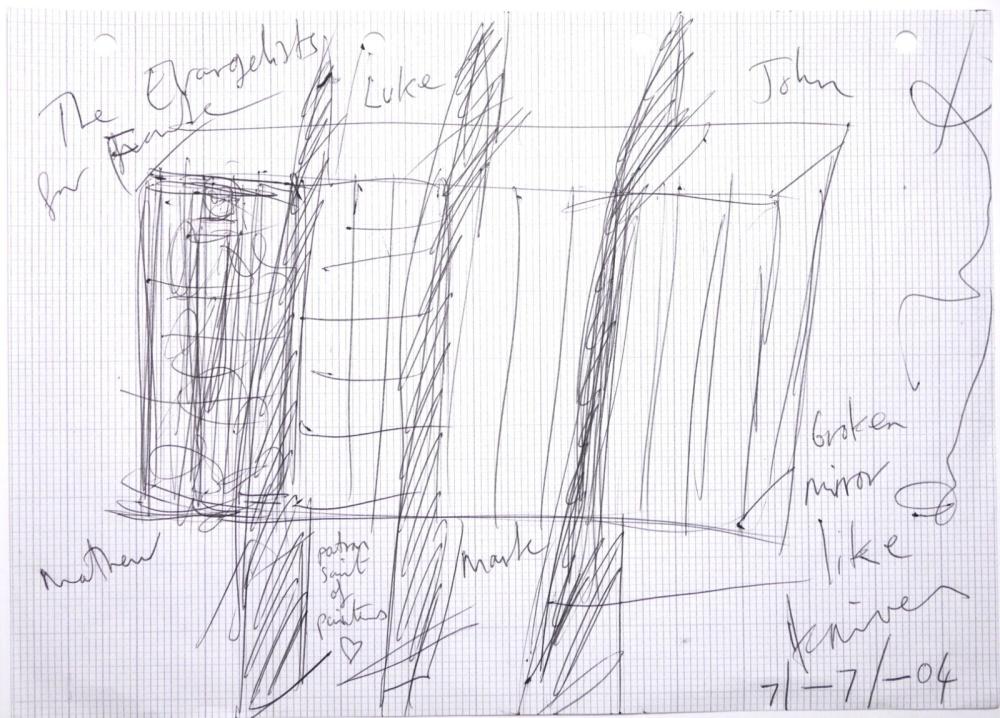 The Evangelists
four
Luke
John
Mathew
patron
saint
of
painters
Mark
broken
mirror
like
knives
7/-7/-04